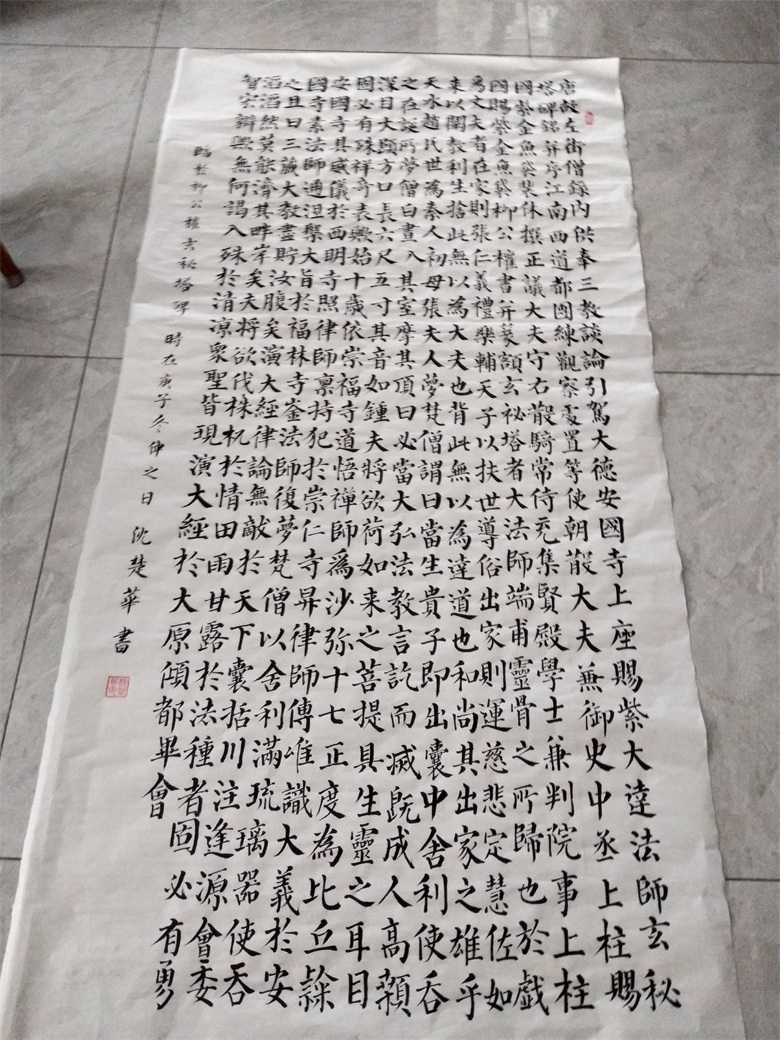 唐故左街僧録內供奉三教談論引駕大德安國寺上座賜紫大達法師玄秘
塔碑銘并序江南西道都團練觀察處置等使朝散大夫兼御史中丞上柱賜
國紫金魚袋裴休撰正議大夫守右散騎常侍充集賢殿學士兼判院事上柱
國賜紫金魚袋柳公權書并篆額玄祕塔者大法師端甫靈骨之所歸也於戲
為丈夫者在家則張仁義禮樂輔天子以扶世導俗出家則運慈悲定慧佐如
来以闡教利生捨此無以為大夫也背此無以為達道也和尚其出家之雄乎
天水趙氏世為秦人初母張夫人夢梵僧謂曰當生貴子即出囊中舍利使吞
之在誕所夢僧白晝入其室摩其頂曰必當大弘法教言訖而滅既成人高顙
深目大頤方口長六尺五寸其音如鍾夫將欲荷如来之菩提具生靈之耳目
固必有殊祥奇表歟始十歲依崇福寺道悟禪師為沙弥十七正度為比丘緣
安國寺具威儀於西明寺照律師禀持犯於崇仁寺昇律師傳唯識大義於安
國寺素法師通涅槃大旨於福林寺崟法師復夢梵僧以舍利滿琉璃器使吞
之且曰三藏大教盡貯汝腹矣演大經律論無敵於天下囊括川注逢源會委
滔滔然莫能濟其畔岸矣夫將欲伐株杌於情田雨甘露於法種者固必有勇
智宏辯歟無何謁入殊於清凉衆聖皆現演大經於大原傾都畢會
臨於柳公權玄秘塔碑 時在庚子冬仲之日 沈楚華書